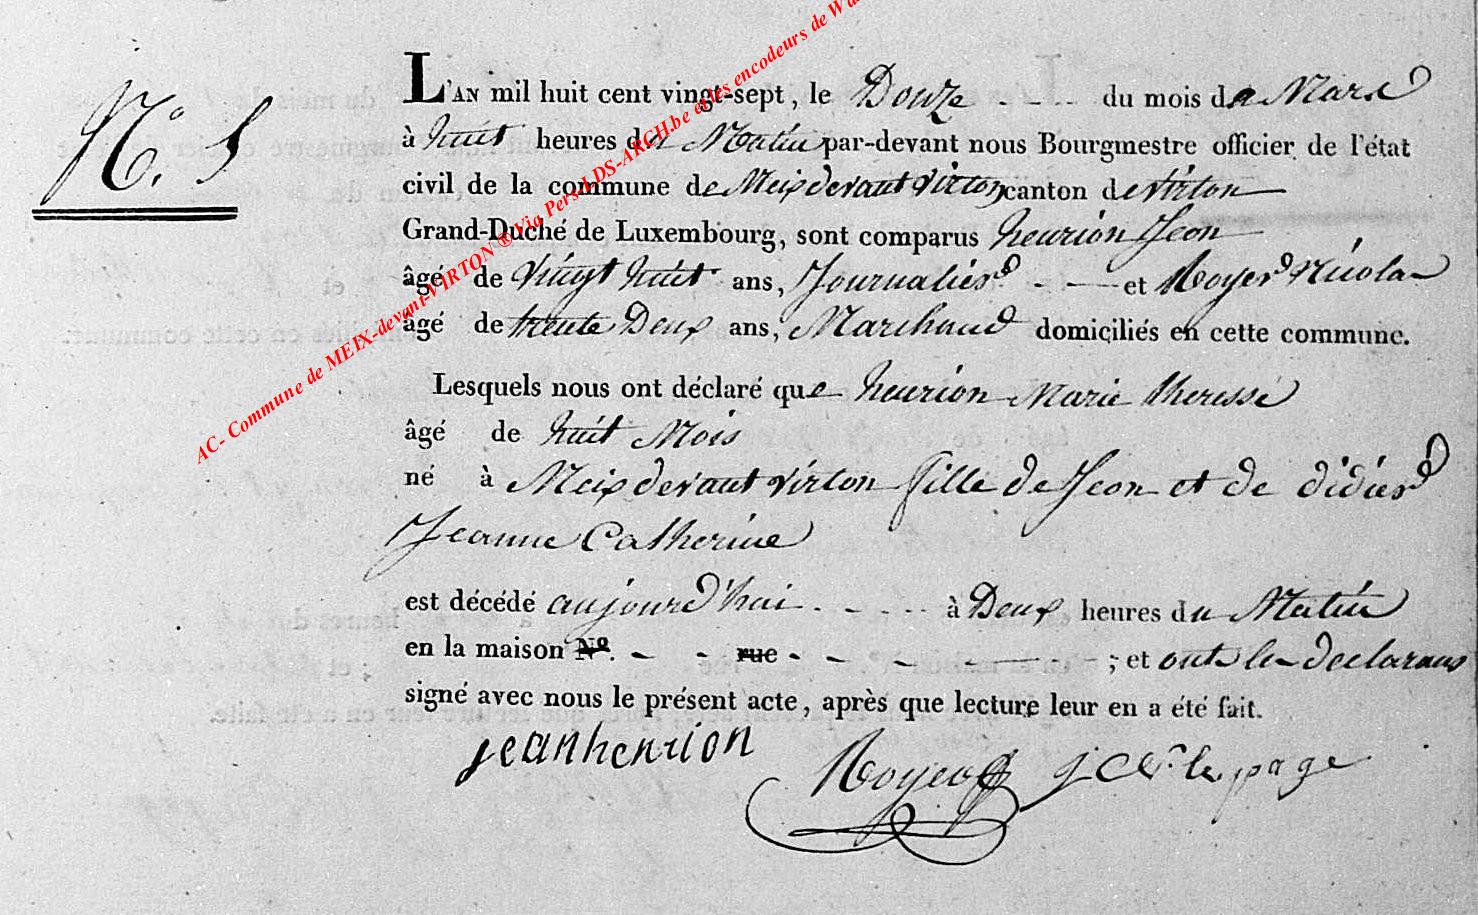 N.° 5
L'AN mil huit cent vingt-sept, le Douze - - - du mois de Mars
à huit heures du Matin par-devant nous Bourgmestre officier de l'état
civil de la commune de Meix devant Virton canton de Virton
Grand-Duché de Luxembourg, sont comparus henrion Jean
âgé de Vingt huit ans, Journalier - - et Noyer Nicola
âgé de trente Deux ans, Marchand domiciliés en cette commune.
Lesquels nous ont déclaré que henrion Marie theresse
âgé de huit Mois
né à Meix devant Virton fille de Jean et de didier
Jeanne Catherine
est décédé aujourd'hui - - - - à Deux heures du Matin
en la maison N°. - - rue - - - - ; et ont les declarans
signé avec nous le présent acte, après que lecture leur en a été fait.
jean henrion Noyer lepage
AC- Commune de MEIX-devant-VIRTON ® Via Pers-LDS-ARCH.be et les encodeurs de